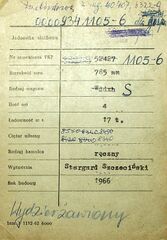 0000934 1105-6
Jednostka służbowa
Nr inwentarza PKP 52427 1105-6
Szerokość toru 785 mm
Rodzaj wagonu Wddxh S
Ilość osi 4
Ładowność w t 17 t.
Ciężar własny
Rodzaj hamulca ręczny
Wytwórnia Stargard Szczeciński
Rok budowy 1966
Wydzierżawiony